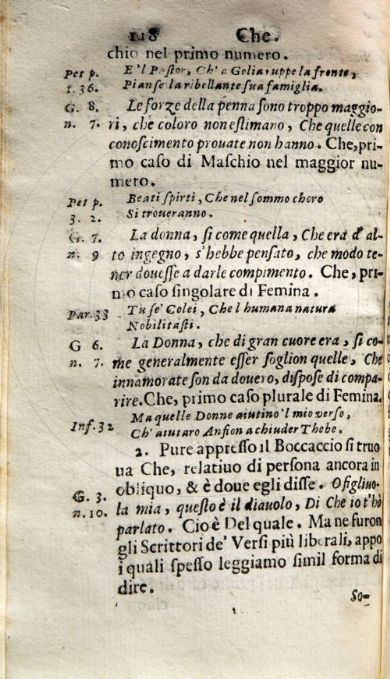 118 Che.
chio nel primo numero.
Pet p. E'l Pastor, Ch'a Golia ruppe la fronte,
1. 36. Pianse la ribellante sua famiglia.
G. 8. Le forze della penna sono troppo maggio-
n. 7. ri, che coloro non estimano, Che quelle con
conoscimento prouate non hanno. Che, pri-
mo caso di Maschio nel maggior nu-
mero.
Pet p. Beati spirti, Che nel sommo choro
3. 2. Si troueranno.
G. 7. La donna, si come quella, Che era d'al-
n. 9 to ingegno, s'hebbe pensato, che modo te-
ner douesse a darle compimento. Che, pri-
mo caso singolare di Femina.
Par. 33 Tu se' Colei, Che l humana natura
Nobilitasti.
G 6. La Donna, che di gran cuore era, si co-
n. 7. me generalmente esser soglion quelle, Che
innamorate son da douero, dispose di compa-
rire. Che, primo caso plurale di Femina.
Ma quelle Donne aiutino'l mio verso,
Inf. 32 Ch'aiutaro Anfion a chiuder Thebe.
2. Pure appresso il Boccaccio si truo
ua Che, relatiuo di persona ancora in
obliquo, & è doue egli disse. O figliuo-
G. 3. la mia, questo è il diauolo, Di Che io t'hò
n. 10. parlato. Cioè Del quale. Ma ne furon
gli Scrittori de' Versi più liberali, appo
i quali spesso leggiamo simil forma di
dire.
So-